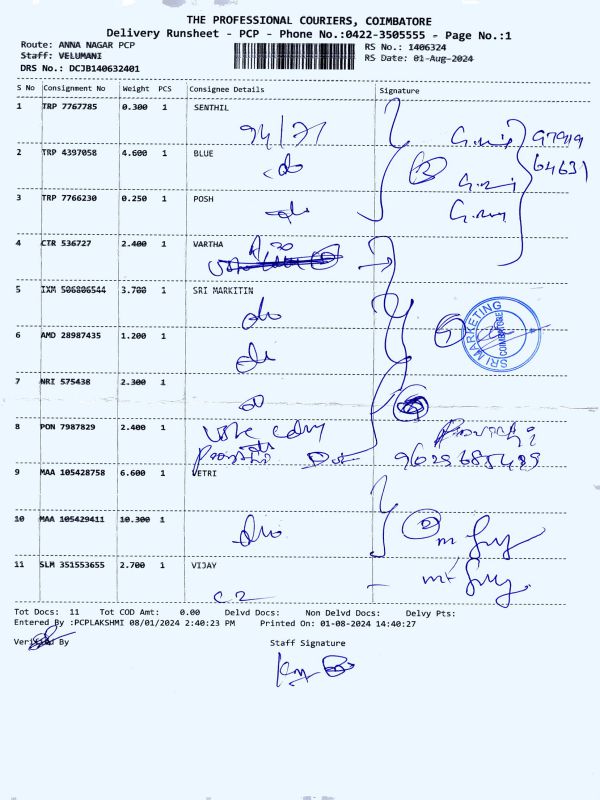 THE PROFESSIONAL COURIERS, COIMBATORE
Delivery Runsheet - PCP - Phone No.:0422-3505555 - Page No.:1
Route: ANNA NAGAR PCP
RS No.: 1406324
Staff: VELUMANI
RS Date: 01-Aug-2024
DRS No.: DCJB140632401
S No Consignment No Weight PCS Consignee Details Signature
1 TRP 7767785 0.300 1 SENTHIL
94/71
97919
2 TRP 4397058 4.600 1 BLUE
64631
do
3 TRP 7766230 0.250 1 POSH
do
4 CTR 536727 2.400 1 VARTHA
5 IXM 506806544 3.700 1 SRI MARKITIN
do
SRI MARKETING
COIMBATORE
6 AMD 28987435 1.200 1
do
7 NRI 575438 2.300 1
do
8 PON 7987829 2.400 1
9 MAA 105428758 6.600 1 VETRI
10 MAA 105429411 10.300 1
11 SLM 351553655 2.700 1 VIJAY
Tot Docs: 11 Tot COD Amt: 0.00 Delvd Docs: Non Delvd Docs: Delvy Pts:
Entered By :PCPLAKSHMI 08/01/2024 2:40:23 PM Printed On: 01-08-2024 14:40:27
Verified By Staff Signature